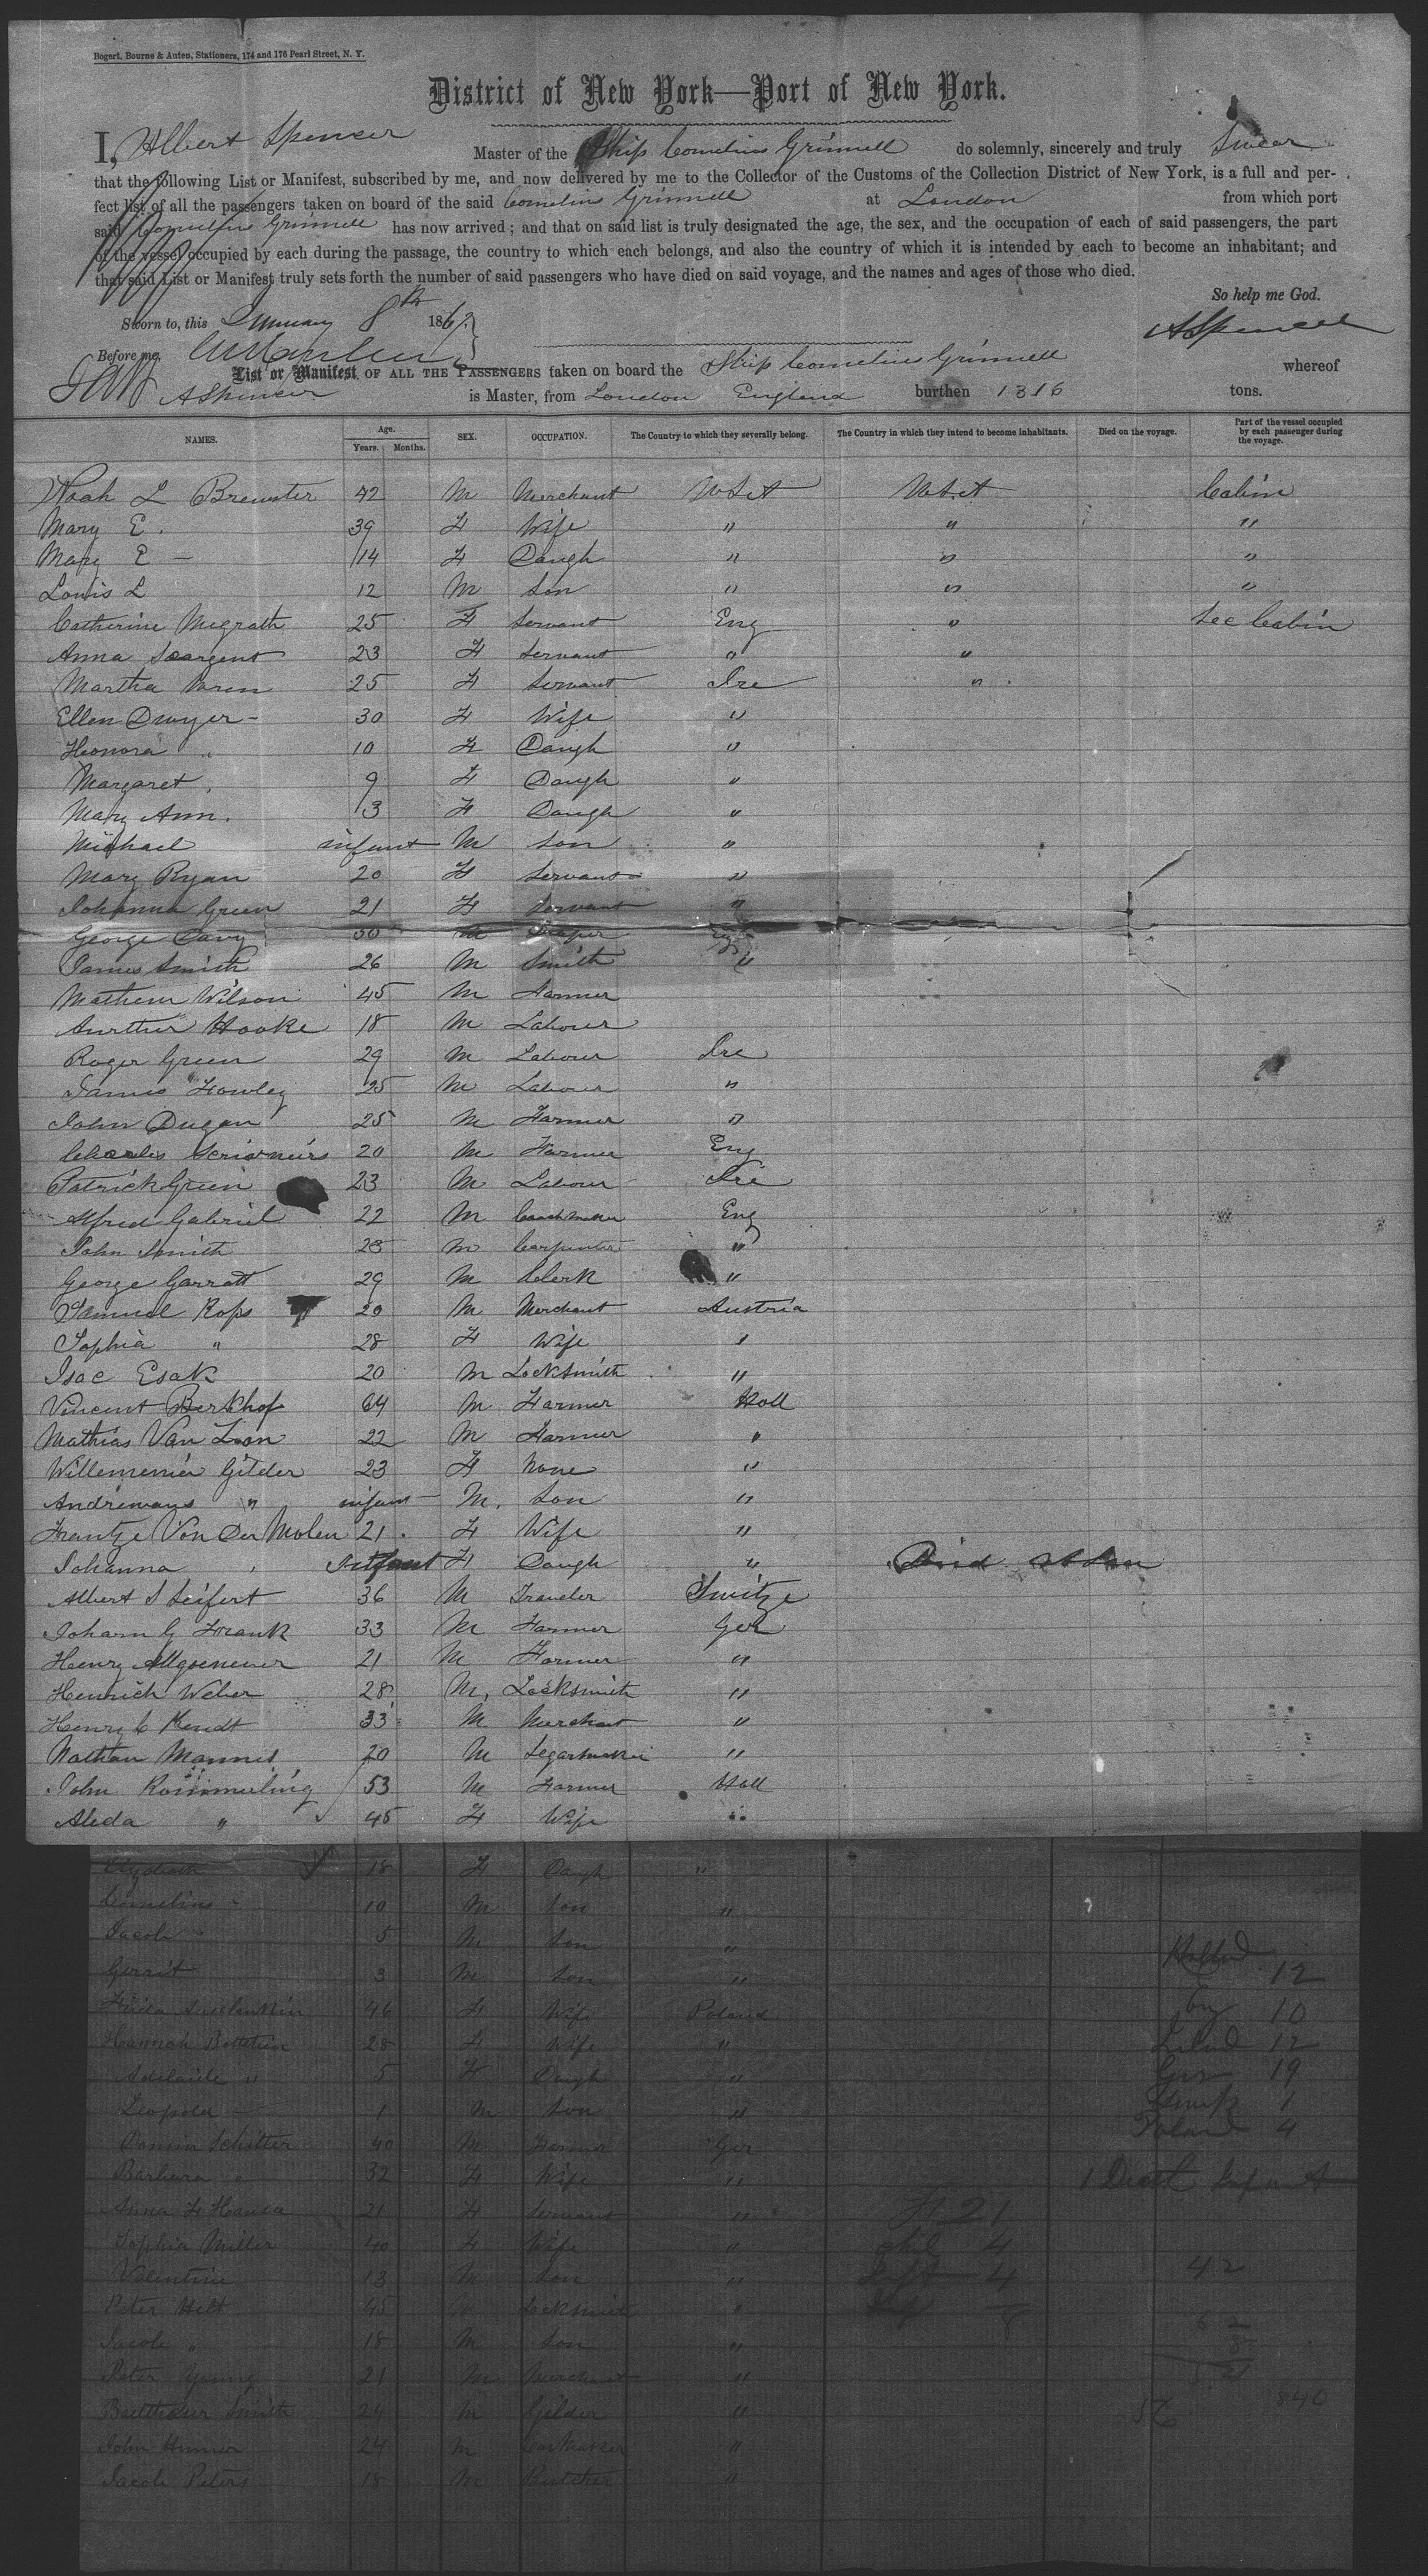 Bogert, Bourne & Auten, Stationers, 174 and 176 Pearl Street, N. Y.
District of New York—Port of New York.
I, Albert Spencer Master of the Ship Cornelius Grinnell do solemnly, sincerely and truly Swear
that the following List or Manifest, subscribed by me, and now delivered by me to the Collector of the Customs of the Collection District of New York, is a full and per-
fect list of all the passengers taken on board of the said Cornelius Grinnell at London from which port
said Cornelius Grinnell has now arrived; and that on said list is truly designated the age, the sex, and the occupation of each of said passengers, the part
of the vessel occupied by each during the passage, the country to which each belongs, and also the country of which it is intended by each to become an inhabitant; and
that said List or Manifest truly sets forth the number of said passengers who have died on said voyage, and the names and ages of those who died.
So help me God.
Sworn to, this January 8th 186
A Spencer
Before me,
List or Manifest OF ALL THE PASSENGERS taken on board the Ship Cornelius Grinnell whereof
A Spencer is Master, from London England burthen 1316 tons.
NAMES. Age. Years. Months. SEX. OCCUPATION. The Country to which they severally belong. The Country in which they intend to become inhabitants. Died on the voyage. Part of the vessel occupied by each passenger during the voyage.
Noah L Brewster 42 M Merchant U S A U S A Cabin
Mary E. 39 F Wife " " "
Mary E — 14 F Daugh " " "
Louis L 12 M Son " " "
Catherine Megrath 25 F Servant Eng " Sec Cabin
Anna Seargent 23 F Servant " "
Martha 25 F Servant Ire "
Ellen Dwyer - 30 F Wife "
Honora " 10 F Daugh "
Margaret 9 F Daugh "
Mary Ann. 3 F Daugh "
Michael infant M Son "
Mary Ryan 20 F Servant "
Johanna Green 21 F Servant "
George Davy 30 M Eng
James Smith 26 M Smith "
Mathew Wilson 45 M Farmer
Hooke 18 M Labourer
Roger Green 29 M Labourer Ire
James 25 M Labourer "
John Dugan 25 M Farmer "
Charles 20 M Farmer Eng
Patrick Green 23 M Labour Ire
Alfred Gabriel 22 M Coachmaker Eng
John Smith 23 M Carpenter "
George Garratt 29 M Clerk "
Samuel Rops 20 M Merchant Austria
Sophia " 28 F Wife "
Isac Esak 20 M Locksmith "
Vincent Berkhof 64 M Farmer Holl
Mathias Van 22 M Farmer "
Gilder 23 F None "
" infant M. Son "
Frantze Von Der Molen 21. F Wife "
Johanna Infant F Daugh " Died
Albert S Seifert 36 M Traveler Switze
Johann G Frank 33 M Farmer Ger
Henry 21 M Farmer "
Heinrich Weber 28 M. Locksmith "
Henry C Kendt 33 M Merchant "
Nathan Mannes 20 M Segarmaker "
John 53 M Farmer Holl
Aleda " 45 F Wife "
18 F Daugh "
Cornelius 10 M Son "
Jacob 5 M Son "
Gerrit 3 M Son " 12
46 F Wife Poland 10
Hannah 28 F Wife " 12
Adelaide " 5 F Daugh " Ger 19
Leopold 1 M Son " 1
Schitter 40 M Farmer Ger Poland 4
Barbara " 32 F Wife " 1 Death Infant
Anna 21 F Servant " 21
Sophia Miller 40 F Wife " 4
Valentine 13 M Son " 4 42
Peter Helt 45 Locksmith " 8
Jacob " 18 M Son "
Peter Young 21 M Merchant "
Smith 24 M Gilder " 840
John 24 M "
Jacob Peters 18 M Butcher "